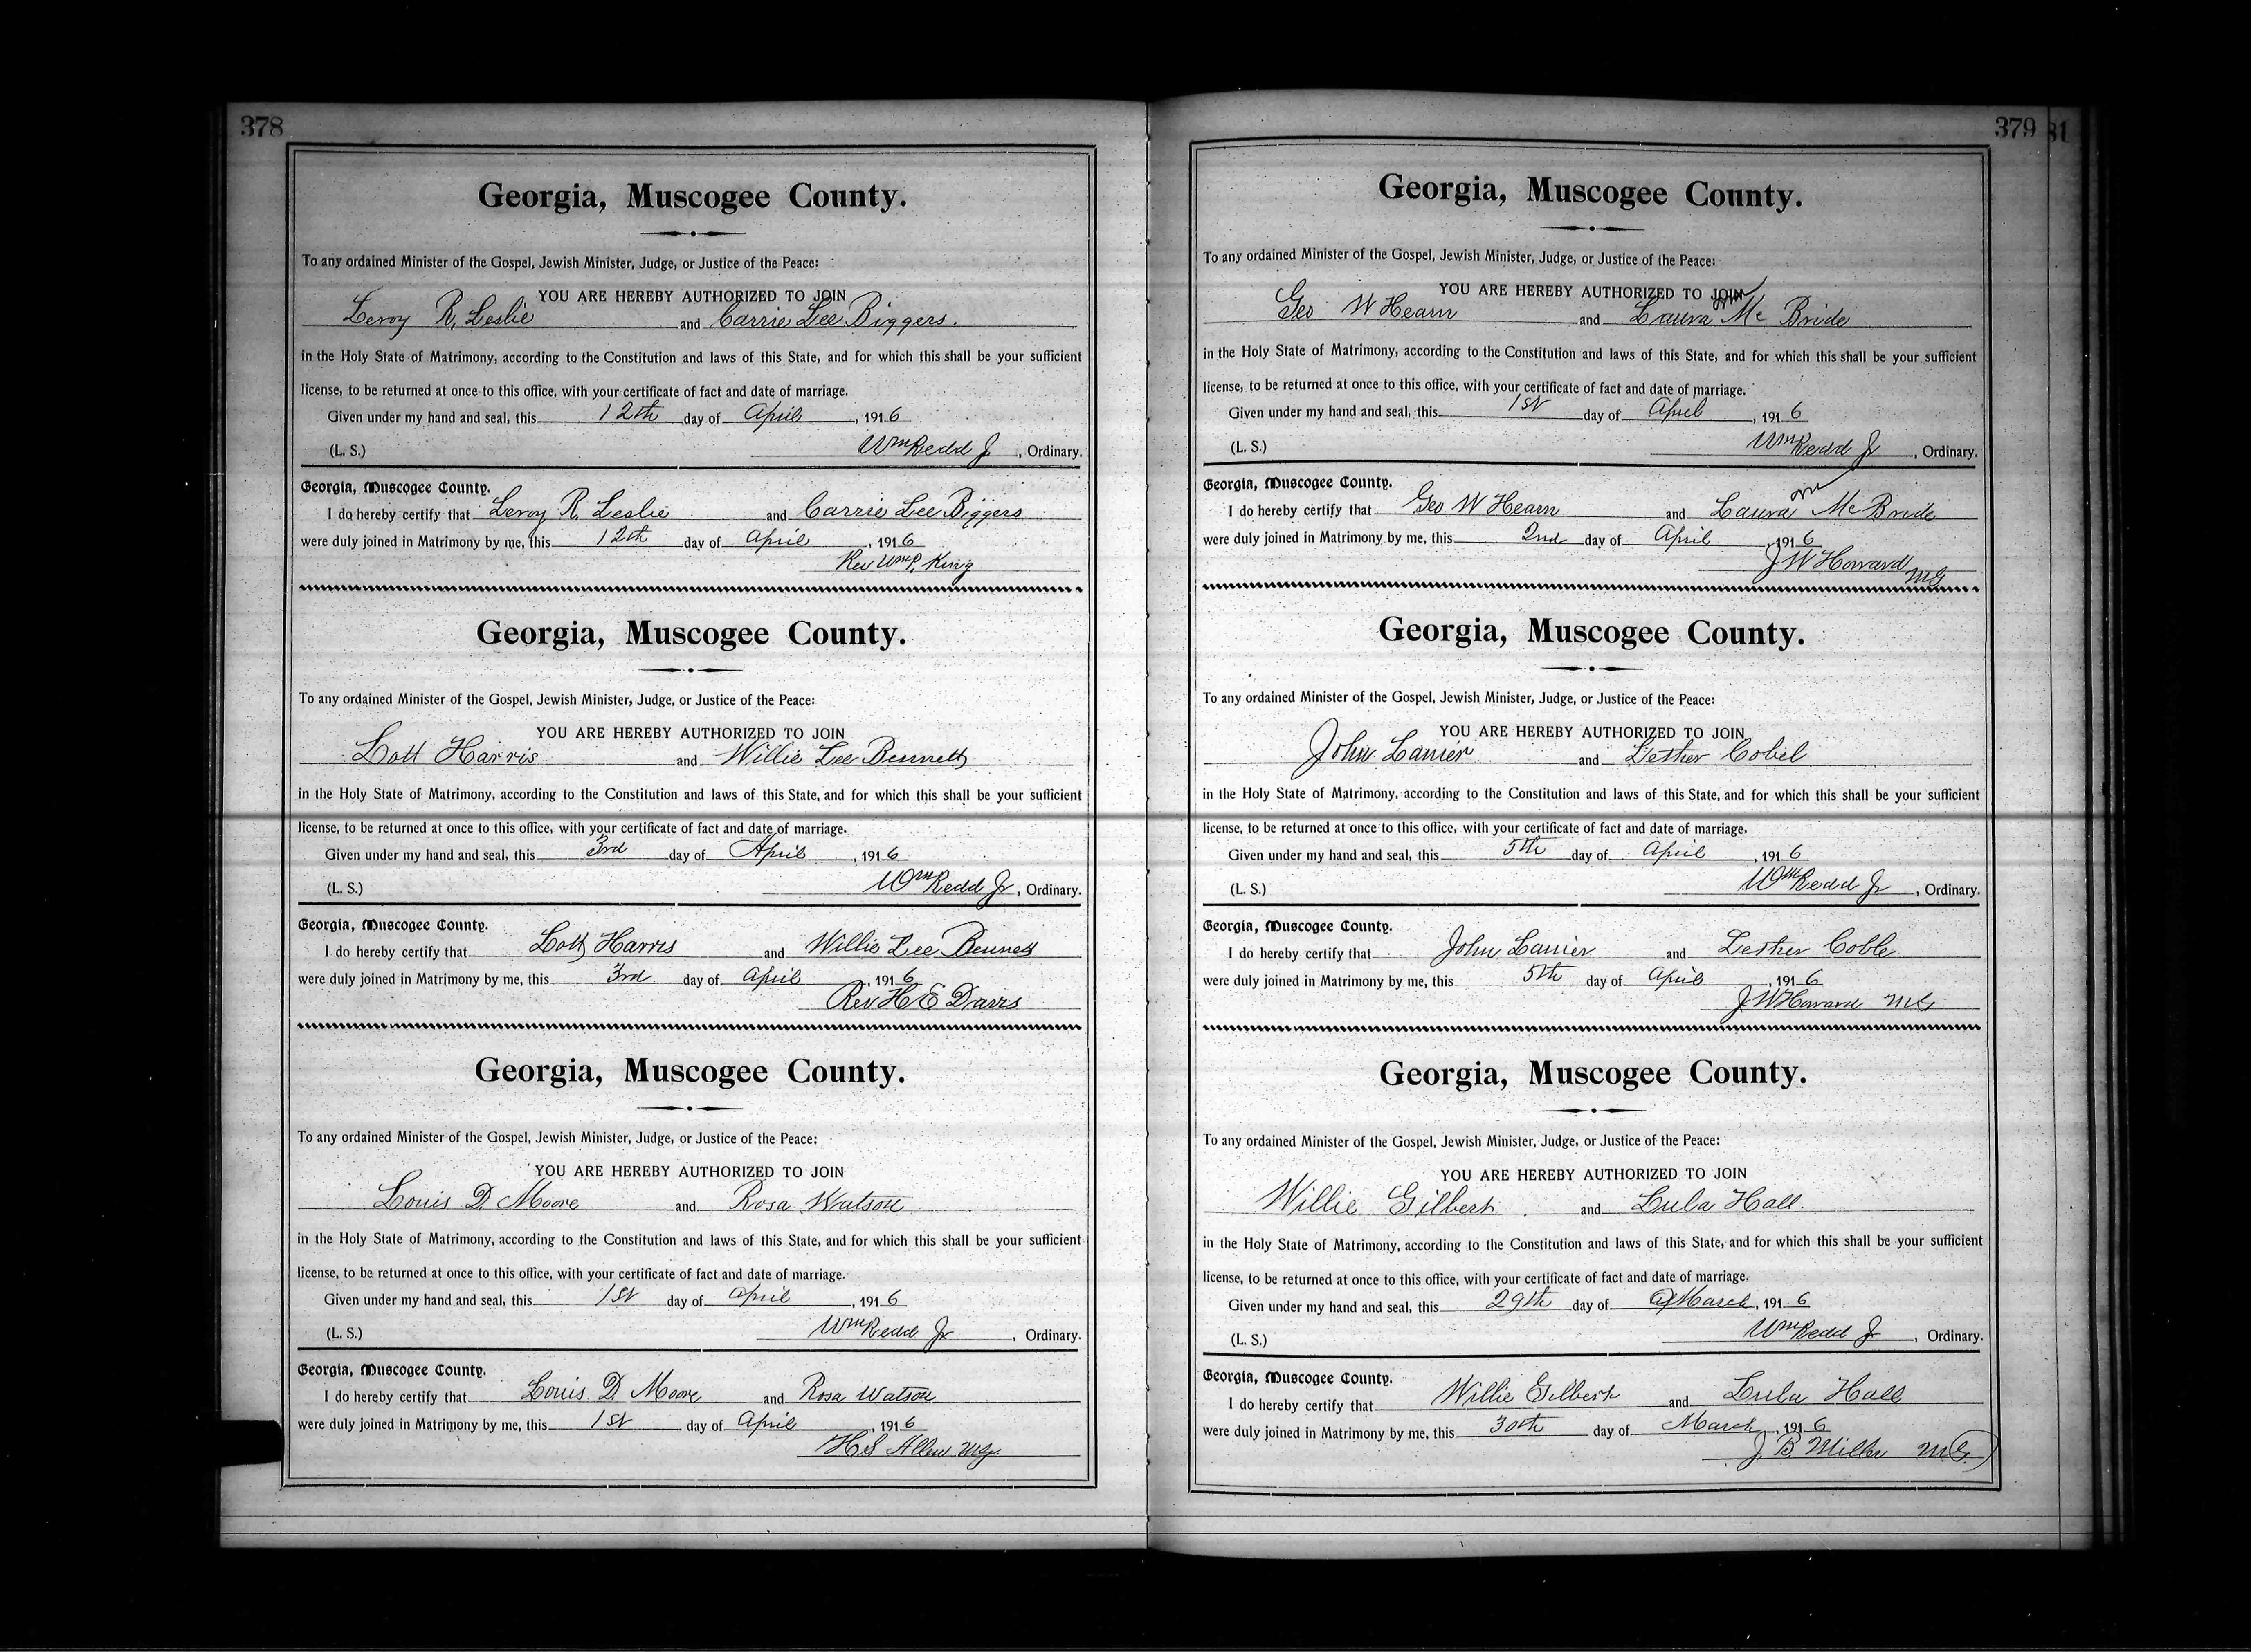 378
Georgia, Muscogee County.
To any ordained Minister of the Gospel, Jewish Minister, Judge, or Justice of the Peace:
YOU ARE HEREBY AUTHORIZED TO JOIN
Leroy R. Leslie and Carrie Lee Biggers.
in the Holy State of Matrimony, according to the Constitution and laws of this State, and for which this shall be your sufficient
license, to be returned at once to this office, with your certificate of fact and date of marriage.
Given under my hand and seal, this 12th day of April, 1916
(L. S.) Wm Redd Jr, Ordinary.
Georgia, Muscogee County.
I do hereby certify that Leroy R. Leslie and Carrie Lee Biggers
were duly joined in Matrimony by me, this 12th day of April, 1916
Rev Wm P. King
Georgia, Muscogee County.
To any ordained Minister of the Gospel, Jewish Minister, Judge, or Justice of the Peace:
YOU ARE HEREBY AUTHORIZED TO JOIN
Lott Harris and Willie Lee Bennett
in the Holy State of Matrimony, according to the Constitution and laws of this State, and for which this shall be your sufficient
license, to be returned at once to this office, with your certificate of fact and date of marriage.
Given under my hand and seal, this 3rd day of April, 1916
(L. S.) Wm Redd Jr, Ordinary.
Georgia, Muscogee County.
I do hereby certify that Lott Harris and Willie Lee Bennett
were duly joined in Matrimony by me, this 3rd day of April, 1916
Rev H E Davis
Georgia, Muscogee County.
To any ordained Minister of the Gospel, Jewish Minister, Judge, or Justice of the Peace:
YOU ARE HEREBY AUTHORIZED TO JOIN
Louis D. Moore and Rosa Watson
in the Holy State of Matrimony, according to the Constitution and laws of this State, and for which this shall be your sufficient
license, to be returned at once to this office, with your certificate of fact and date of marriage.
Given under my hand and seal, this 1st day of April, 1916
(L. S.) Wm Redd Jr, Ordinary.
Georgia, Muscogee County.
I do hereby certify that Louis D. Moore and Rosa Watson
were duly joined in Matrimony by me, this 1st day of April, 1916
H S Allen MG
379 81
Georgia, Muscogee County.
To any ordained Minister of the Gospel, Jewish Minister, Judge, or Justice of the Peace:
YOU ARE HEREBY AUTHORIZED TO JOIN
Geo W Hearn and Laura McBride
in the Holy State of Matrimony, according to the Constitution and laws of this State, and for which this shall be your sufficient
license, to be returned at once to this office, with your certificate of fact and date of marriage.
Given under my hand and seal, this 1st day of April, 1916
(L. S.) Wm Redd Jr, Ordinary.
Georgia, Muscogee County.
I do hereby certify that Geo W Hearn and Laura McBride
were duly joined in Matrimony by me, this 2nd day of April, 1916
J W Howard MG
Georgia, Muscogee County.
To any ordained Minister of the Gospel, Jewish Minister, Judge, or Justice of the Peace:
YOU ARE HEREBY AUTHORIZED TO JOIN
John Lanier and Lesther Cobil
in the Holy State of Matrimony, according to the Constitution and laws of this State, and for which this shall be your sufficient
license, to be returned at once to this office, with your certificate of fact and date of marriage.
Given under my hand and seal, this 5th day of April, 1916
(L. S.) Wm Redd Jr, Ordinary.
Georgia, Muscogee County.
I do hereby certify that John Lanier and Lesther Coble
were duly joined in Matrimony by me, this 5th day of April, 1916
J W Howard MG
Georgia, Muscogee County.
To any ordained Minister of the Gospel, Jewish Minister, Judge, or Justice of the Peace:
YOU ARE HEREBY AUTHORIZED TO JOIN
Willie Gilbert and Lula Hall
in the Holy State of Matrimony, according to the Constitution and laws of this State, and for which this shall be your sufficient
license, to be returned at once to this office, with your certificate of fact and date of marriage.
Given under my hand and seal, this 29th day of March, 1916
(L. S.) Wm Redd Jr, Ordinary.
Georgia, Muscogee County.
I do hereby certify that Willie Gilbert and Lula Hall
were duly joined in Matrimony by me, this 30th day of March, 1916
J. B. Miller MG